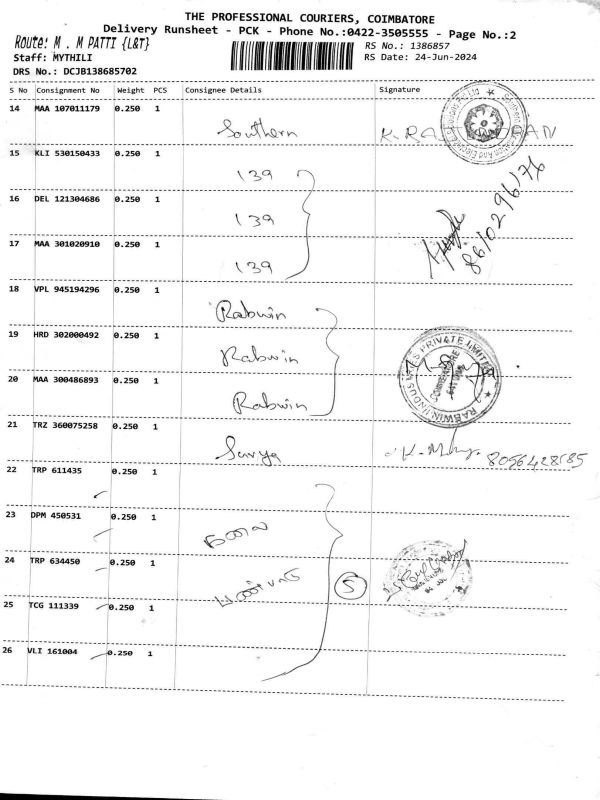 THE PROFESSIONAL COURIERS, COIMBATORE
Delivery Runsheet - PCK - Phone No.:0422-3505555 - Page No.:2
Route: M . M PATTI {L&T}
RS No.: 1386857
Staff: MYTHILI
RS Date: 24-Jun-2024
DRS No.: DCJB138685702
S No Consignment No Weight PCS Consignee Details Signature
14 MAA 107011179 0.250 1
Southern
15 KLI 530150433 0.250 1
139
16 DEL 121304686 0.250 1
139
17 MAA 301020910 0.250 1
139
18 VPL 945194296 0.250 1
Rabwin
19 HRD 302000492 0.250 1
Rabwin
20 MAA 300486893 0.250 1
Rabwin
RABWIN INDUSTRIES PRIVATE LIMITED
21 TRZ 360075258 0.250 1
Surya
22 TRP 611435 0.250 1
23 DPM 450531 0.250 1
24 TRP 634450 0.250 1
5
25 TCG 111339 0.250 1
26 VLI 161004 0.250 1